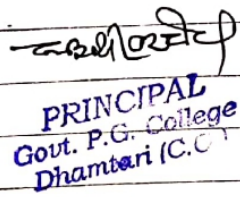 PRINCIPAL
Govt. P.G. College
Dhamtari (C.G